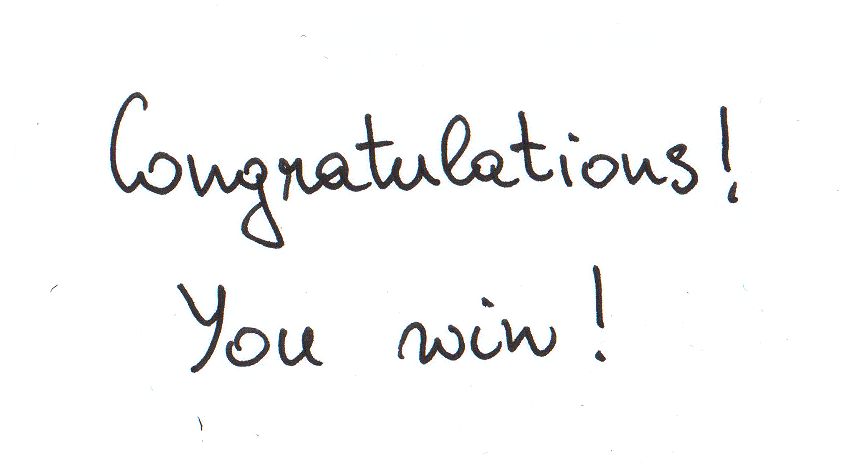 Congratulations!
You win!